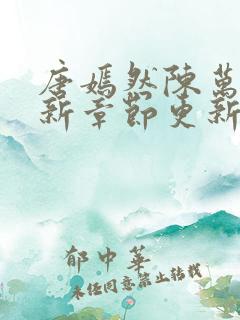 唐嫣然陳萬
新章節更新
郁中華
未經同意禁止轉載